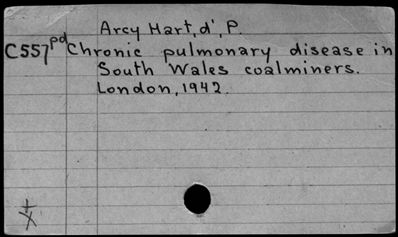 Arcy Hart, d', P.
C557pd Chronic pulmonary disease in
South Wales coalminers.
London, 1942.